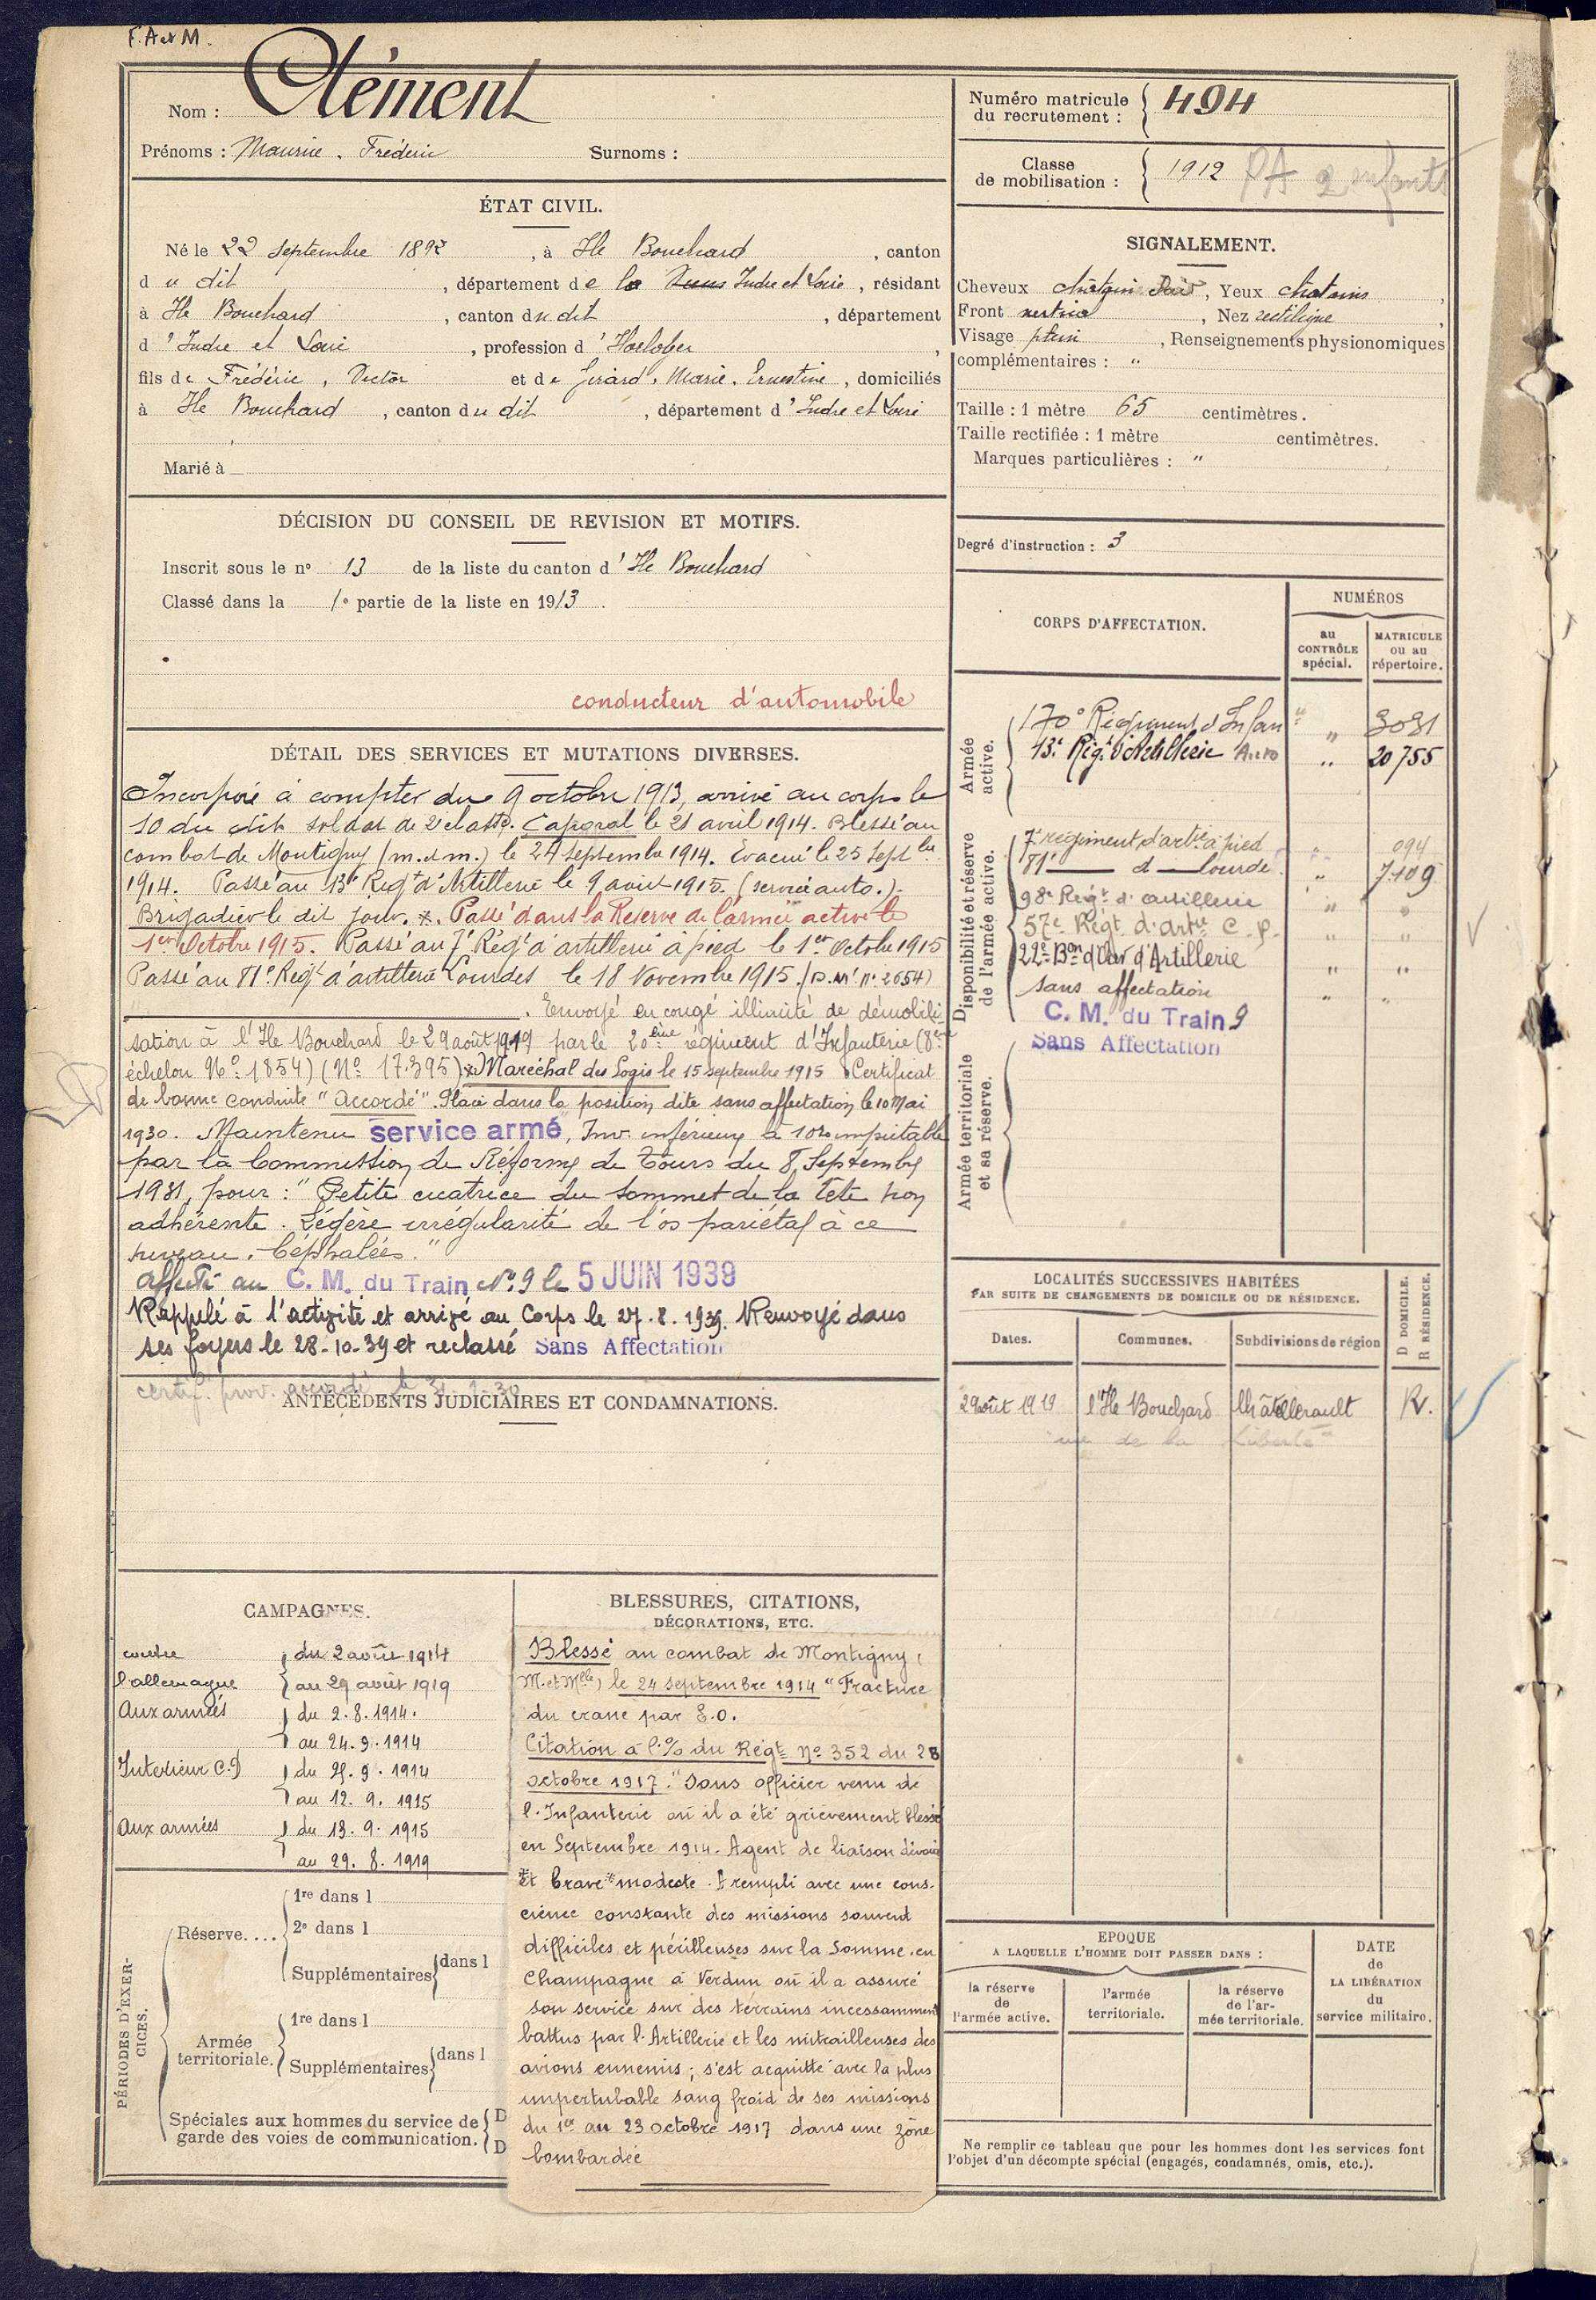 F. A et M.
Nom : Clément
Prénoms : Maurice . Fréderic Surnoms :
Numéro matricule
du recrutement : 494
Classe
de mobilisation : 1912 PA 2 enfants
ÉTAT CIVIL.
Né le 22 septembre 1892, à Ile Bouchard, canton
du dit, département de la Indre et Loire, résidant
à Ile Bouchard, canton du dit, département
d'Indre et Loire, profession d'Horloger,
fils de Frédéric, Victor et de Girard, Marie. Ernestine, domiciliés
à Ile Bouchard, canton du dit, département d'Indre et Loire
Marié à
SIGNALEMENT.
Cheveux châtain, Yeux chatains,
Front vertical, Nez rectiligne,
Visage plein, Renseignements physionomiques
complémentaires : "
Taille : 1 mètre 65 centimètres.
Taille rectifiée : 1 mètre centimètres.
Marques particulières : "
Degré d'instruction : 3
DÉCISION DU CONSEIL DE REVISION ET MOTIFS.
Inscrit sous le nº 13 de la liste du canton d'Ile Bouchard
Classé dans la 1e partie de la liste en 1913.
conducteur d'automobile
DÉTAIL DES SERVICES ET MUTATIONS DIVERSES.
Incorporé à compter du 9 octobre 1913, arrivé au corps le
10 du dit soldat de 2e classe. Caporal le 21 avril 1914. Blessé au
combat de Montigny (m. et m.) le 24 septembre 1914. Evacué le 25 Septbre
1914. Passé au 13e Regt d'Artillerie le 9 août 1915. (service auto.).
Brigadier le dit jour. *. Passé dans la Réserve de l'armée active le
1er Octobre 1915. Passé au 7e Régt d'artillerie à pied le 1er Octobre 1915
Passé au 81e Regt d'artillerie Lourdes le 18 Novembre 1915. (D. M. nº 2654)
. Envoyé en congé illimité de démobili-
sation à l'Ile Bouchard le 29 août 1919 par le 20ème régiment d'Infanterie (8ème
échelon Nº 1854) (Nº 17.395) * Maréchal des Logis le 15 septembre 1915 Certificat
de bonne conduite "Accordé". Placé dans la position dite sans affectation le 10 Mai
1930. Maintenu service armé, Inv. inférieure à 10% imputable
par la Commission de Réforme de Tours du 8 Septembre
1931, pour : "Petite cicatrice du sommet de la tête non
adhérente. Légère irrégularité de l'os pariétal à ce
niveau. Céphalées."
Affecté au C. M. du Train Nº 9 le 5 JUIN 1939
Rappelé à l'activité et arrivé au Corps le 27.8.1939. Renvoyé dans
ses foyers le 28-10-39 et reclassé Sans Affectation
certif. prov. accordé le
CORPS D'AFFECTATION.
NUMÉROS
au
CONTRÔLE
spécial.
MATRICULE
ou au
répertoire.
Armée
active.
170e Régiment d'Infanie " 3031
13e Régt d'Artillerie Auto " 20755
Disponibilité et réserve
de l'armée active.
7e régiment d'artie à pied " 094
81e — d — lourde " 7.109
98e Régt d'artillerie " "
57e Régt d'artie C. P. " "
22e Bon d'Ouv d'Artillerie " "
sans affectation " "
C. M. du Train 9
Sans Affectation
Armée territoriale
et sa réserve.
LOCALITÉS SUCCESSIVES HABITÉES
PAR SUITE DE CHANGEMENTS DE DOMICILE OU DE RÉSIDENCE.
Dates. Communes. Subdivisions de région D DOMICILE. R RÉSIDENCE.
29 août 1919 l'Ile Bouchard Châtellerault R.
rue de la Liberté
ANTÉCÉDENTS JUDICIAIRES ET CONDAMNATIONS.
CAMPAGNES.
contre du 2 août 1914
l'allemagne au 29 août 1919
Aux armées du 2.8.1914.
au 24.9.1914
Intérieur C.D du 25.9.1914
au 12.9.1915
Aux armées du 13.9.1915
au 29.8.1919
BLESSURES, CITATIONS,
DÉCORATIONS, ETC.
Blessé au combat de Montigny,
M. et Mlle) le 24 septembre 1914 "Fracture
du crane par E.O.
Citation à l'% du Régt Nº 352 du 28
octobre 1917. "Sous officier venu de
l'Infanterie où il a été grièvement blessé
en Septembre 1914. Agent de liaison dévoué
et brave * modeste. A rempli avec une cons-
cience constante des missions souvent
difficiles et périlleuses sur la Somme, en
Champagne à Verdun où il a assuré
son service sur des terrains incessamment
battus par l'Artillerie et les mitrailleuses des
avions ennemis ; s'est acquitté avec la plus
impertubable sang froid de ses missions
du 1er au 23 octobre 1917 dans une zône
bombardée
PÉRIODES D'EXER-
CICES.
Réserve....
1re dans l
2e dans l
Supplémentaires dans l
Armée
territoriale.
1re dans l
Supplémentaires dans l
Spéciales aux hommes du service de
garde des voies de communication.
D
D
EPOQUE
A LAQUELLE L'HOMME DOIT PASSER DANS :
la réserve
de
l'armée active.
l'armée
territoriale.
la réserve
de l'ar-
mée territoriale.
DATE
de
LA LIBÉRATION
du
service militaire.
Ne remplir ce tableau que pour les hommes dont les services font
l'objet d'un décompte spécial (engagés, condamnés, omis, etc.).